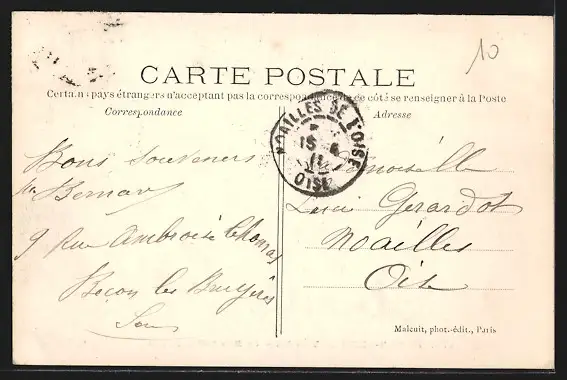 10
CARTE POSTALE
Certains pays étrangers n'acceptant pas la correspondance de ce côté se renseigner à la Poste
Correspondance
Adresse
NOAILLES DE L'OISE
15
11
OISE
Bons Souvenirs
Bernard
9 Rue Ambroise Thomas
Becon les Bruyères
Seine
Mademoiselle
Gerardot
Noailles
Oise
Malcuit, phot.-édit., Paris